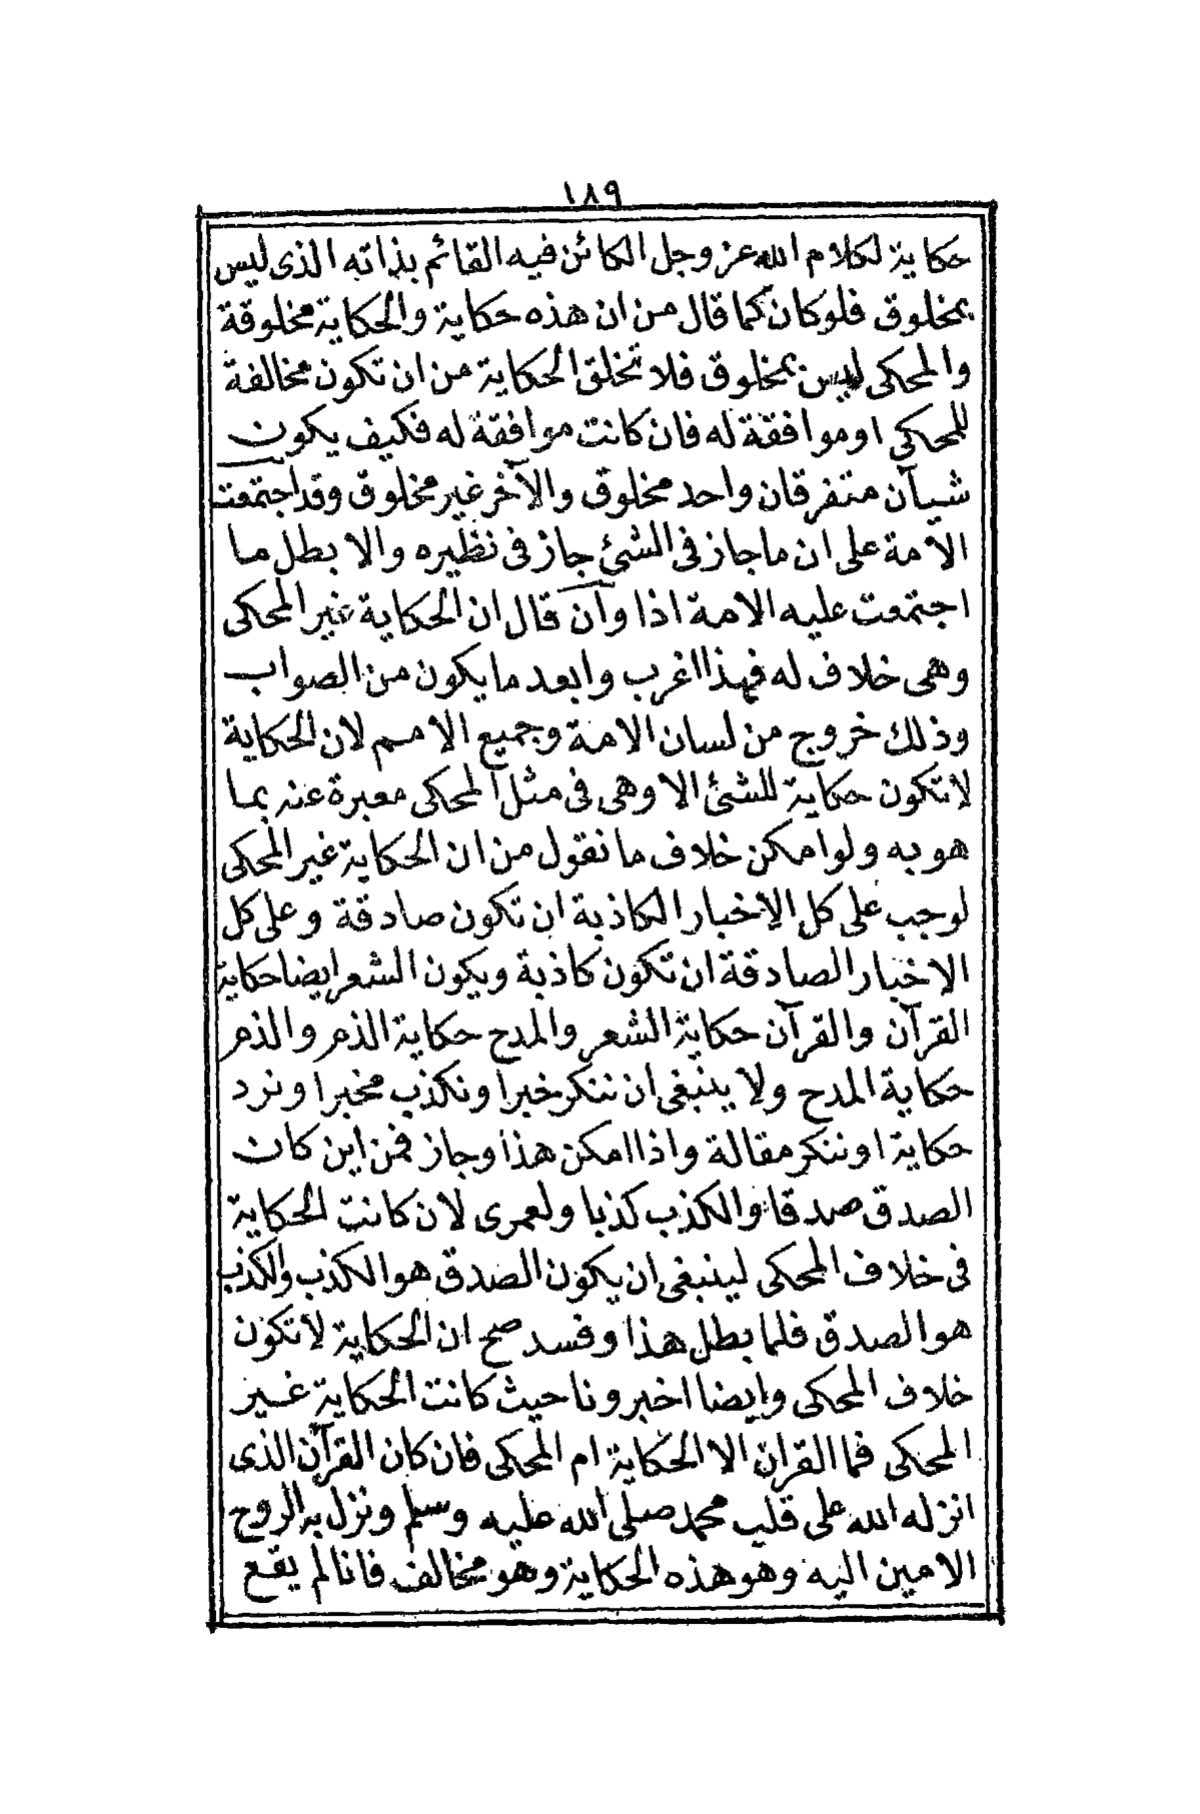 ١٨٩
حكاية لكلام الله عز وجل الكائن فيه القائم بذاته الذى ليس
بمخلوق فلو كان كما قال من ان هذه حكاية والحكاية مخلوقة
والمحكى ليس بمخلوق فلا تخلق الحكاية من ان تكون مخالفة
للمحكى او موافقة له فان كانت موافقة له فكيف يكون
شيآن متفرقان واحد مخلوق والآخر غير مخلوق وقد اجتمعت
الأمة على ان ما جاز فى الشئ جاز فى نظيره والا بطل ما
اجتمعت عليه الامة اذا وان قال ان الحكاية غير المحكى
وهى خلاف له فهذا اغرب وابعد ما يكون من الصواب
وذلك خروج من لسان الامة وجميع الامم لان الحكاية
لا تكون حكاية للشئ الا وهى فى مثل المحكى معبرة عنه بما
هو به ولو امكن خلاف ما نقول من ان الحكاية غير المحكى
لوجب على كل الاخبار الكاذبة ان تكون صادقة وعلى كل
الاخبار الصادقة ان تكون كاذبة ويكون الشعر ايضا حكاية
القرآن والقرآن حكاية الشعر والمدح حكاية الذم والذم
حكاية المدح ولا ينبغى ان ننكر خبرا ونكذب مخبرا ونرد
حكاية او ننكر مقالة واذا امكن هذا وجاز فمن اين كان
الصدق صدقا والكذب كذبا ولعمرى لان كانت الحكاية
فى خلاف المحكى لينبغى ان يكون الصدق هو الكذب والكذب
هو الصدق فلما بطل هذا وفسد صح ان الحكاية لا تكون
خلاف المحكى وايضا اخبرونا حيث كانت الحكاية غير
المحكى فما القران الا الحكاية ام المحكى فان كان القرآن الذى
انزله الله على قلب محمد صلى الله عليه وسلم ونزل به الروح
الامين اليه وهو هذه الحكاية وهو مخالف فانا لم يقع